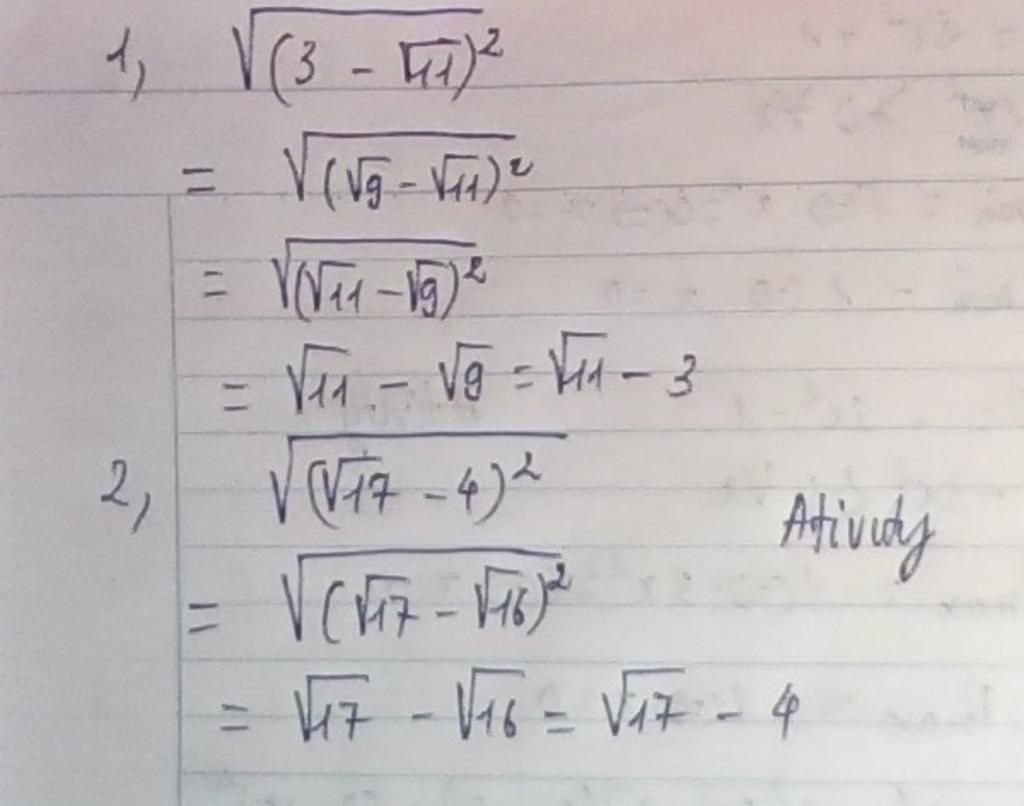 1, √(3 - √11)²
= √(√9 - √11)²
= √(√11 - √9)²
= √11 - √9 = √11 - 3
2, √(√17 - 4)²
= √(√17 - √16)²
= √17 - √16 = √17 - 4